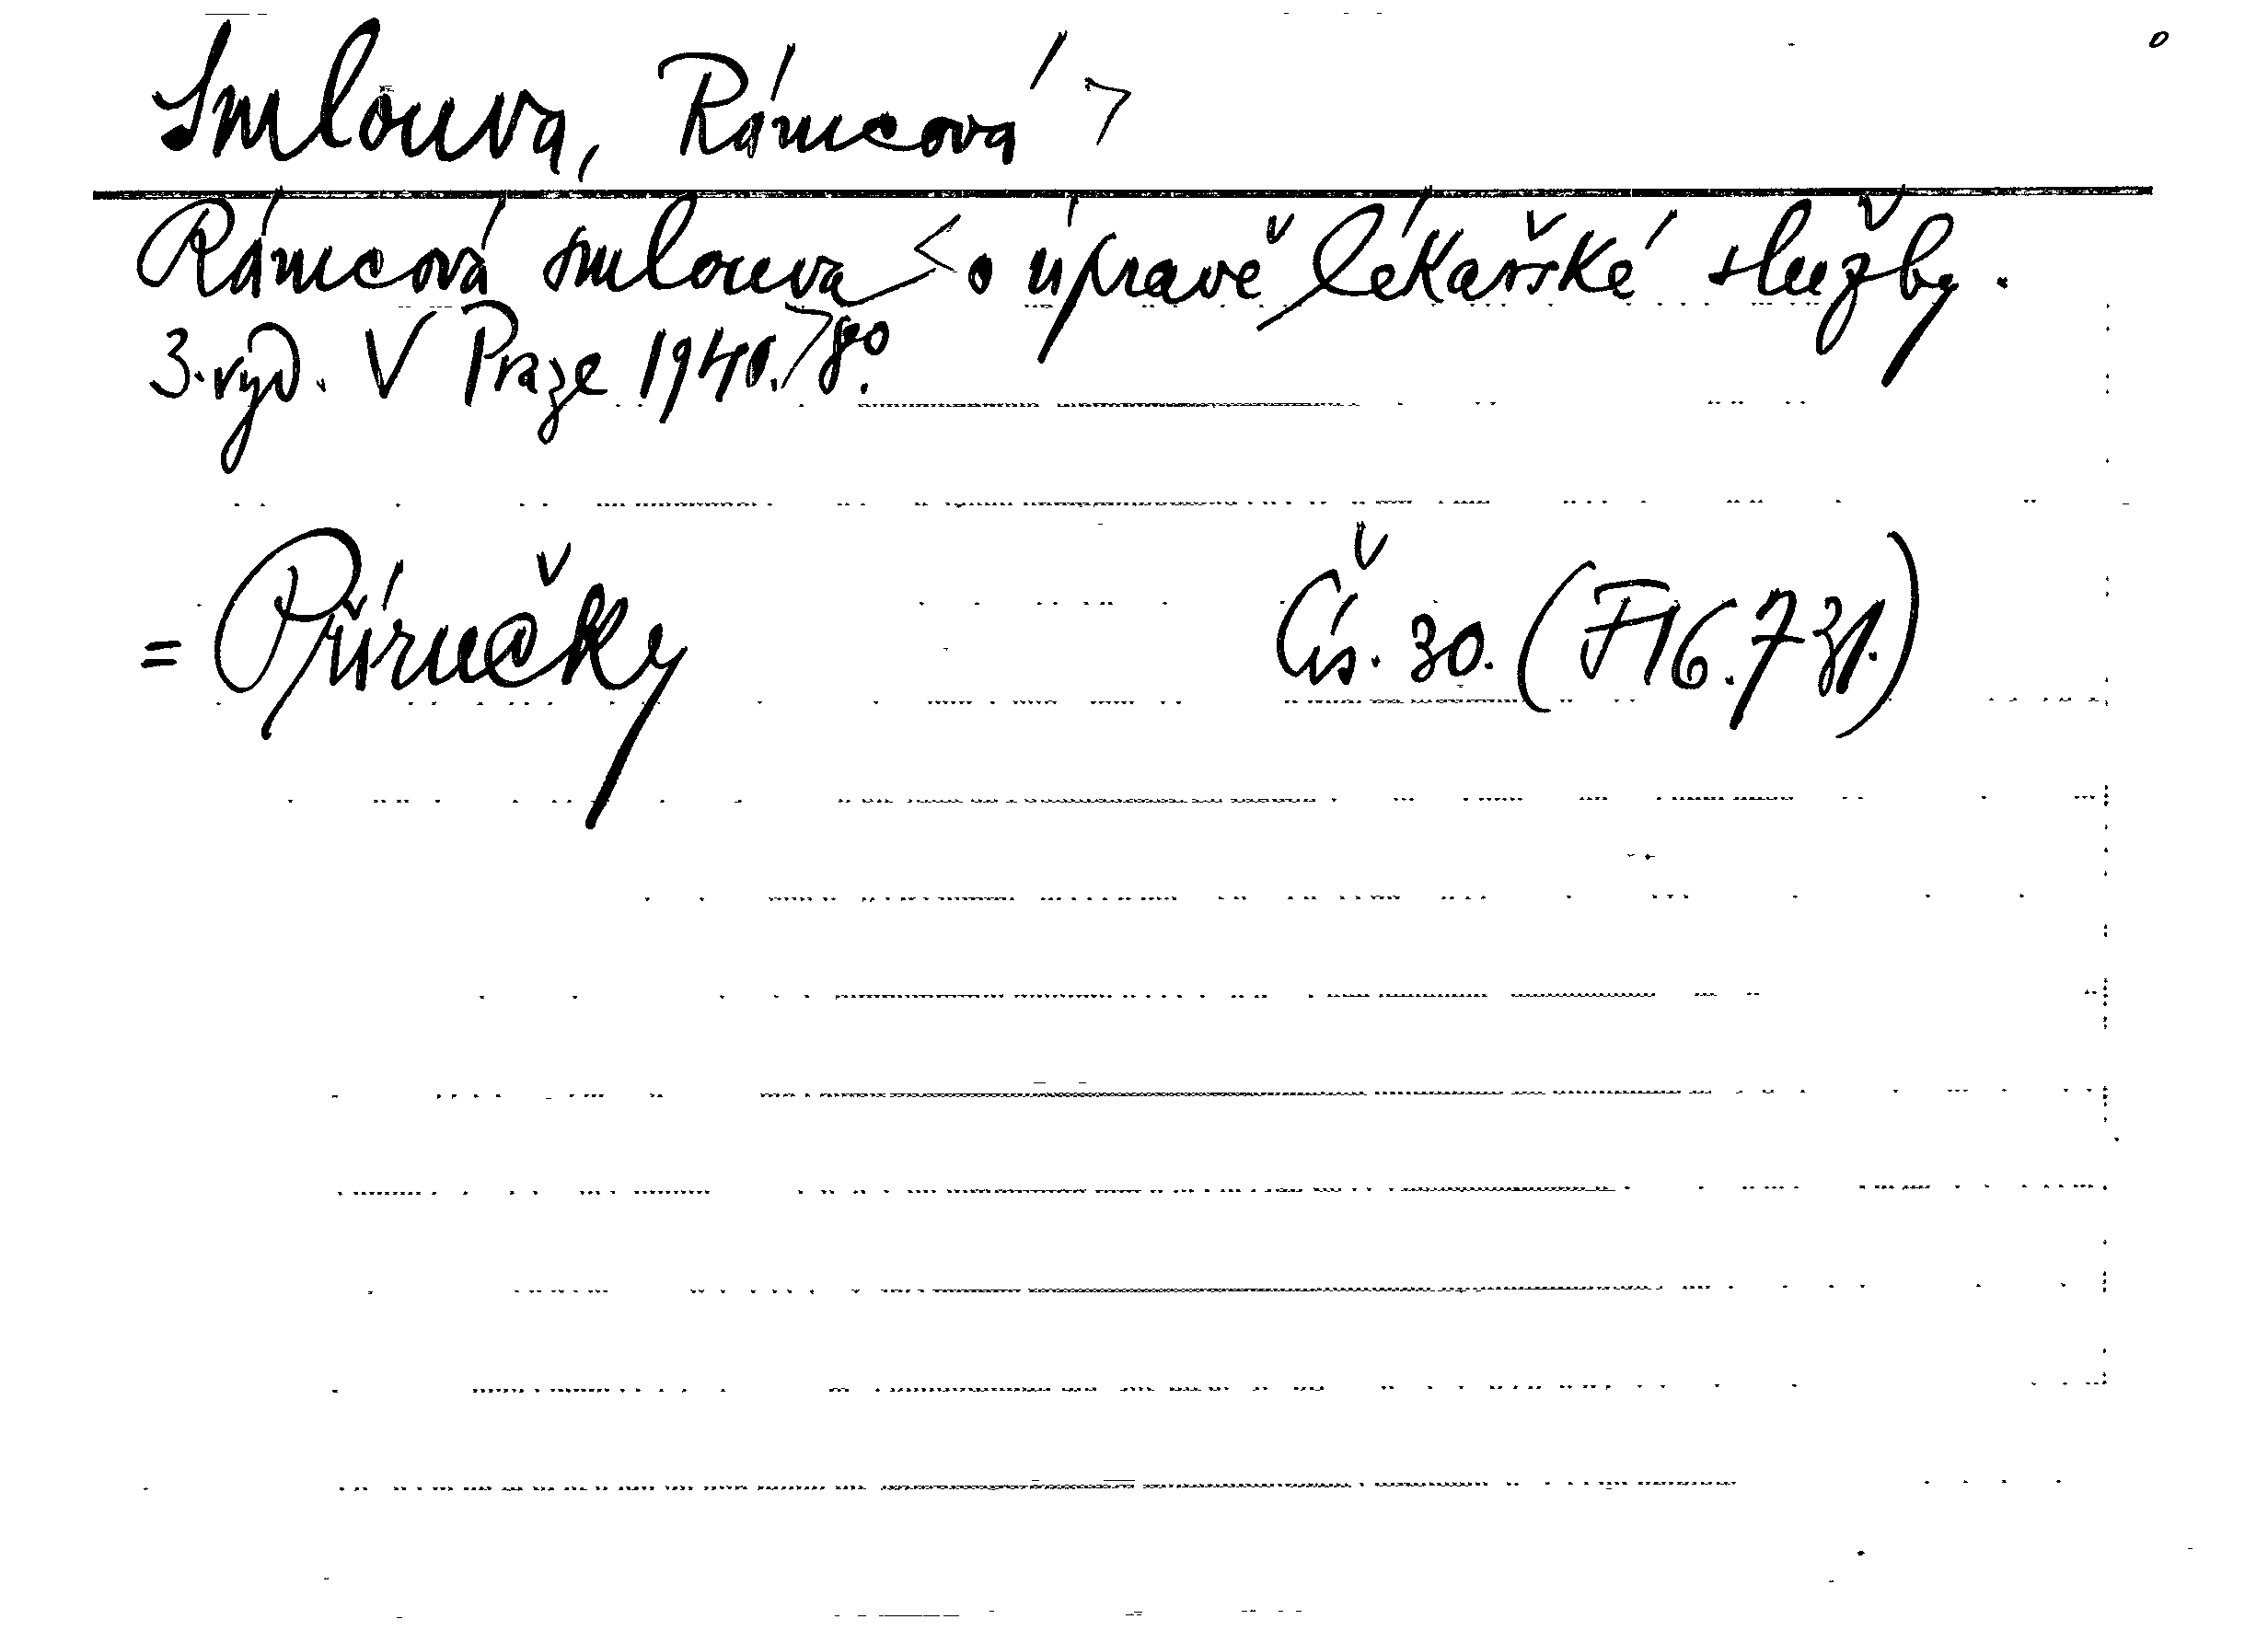 Smlouva, Rámcová >
Rámcová smlouva < o úpravě lékařské služby.
3. vyd. V Praze 1940. > 8º.
= Příručky Čís. 30. (F 16.731.)